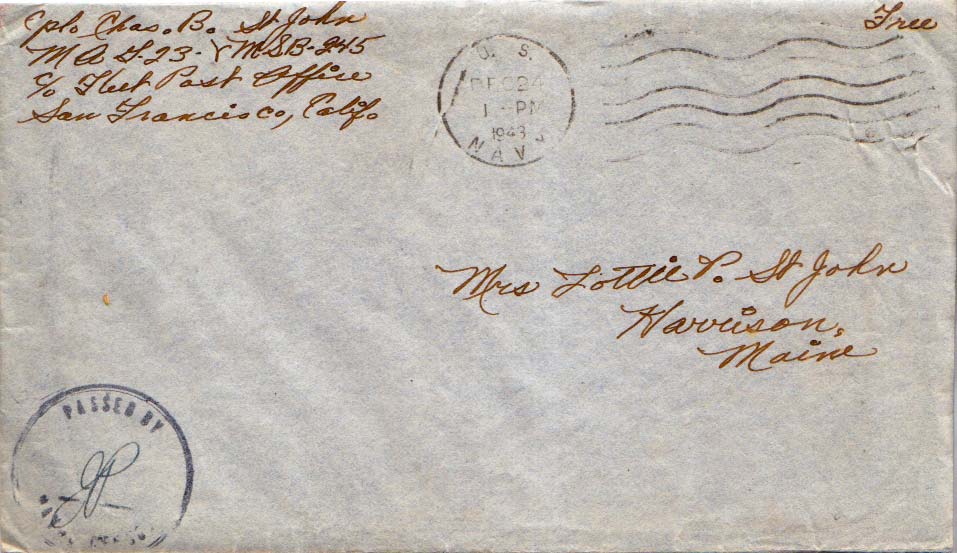 Cpl. Chas. B. St John
MAG-23-VMSB-245
c/o Fleet Post Office
San Francisco, Calif.
Free
U. S.
DEC 24
1 - PM
1943
NAVY
Mrs Lottie P. St John
Harrison,
Maine
PASSED BY